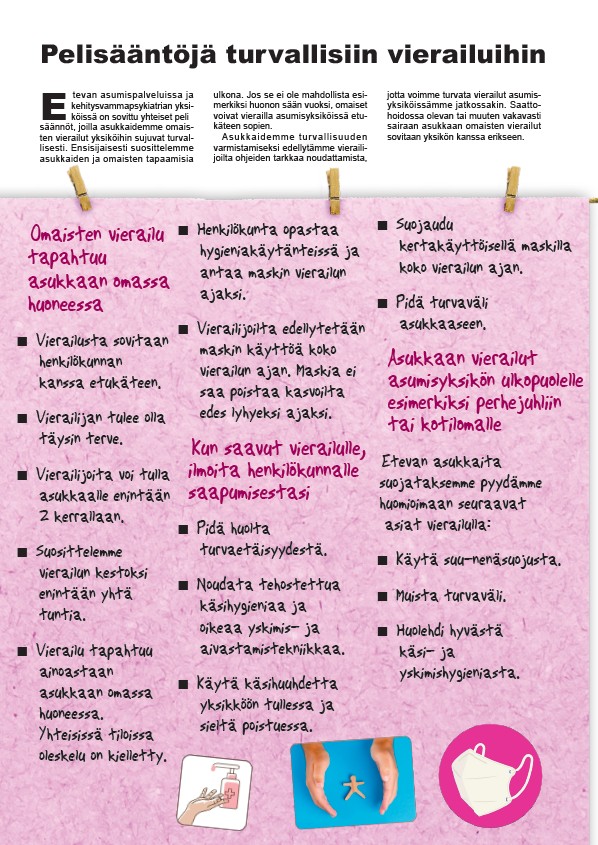 Pelisääntöjä turvallisiin vierailuihin
Etevan asumispalveluissa ja
kehitysvammapsykiatrian yksi-
köissä on sovittu yhteiset peli
säännöt, joilla asukkaidemme omais-
ten vierailut yksiköihin sujuvat turval-
lisesti. Ensisijaisesti suosittelemme
asukkaiden ja omaisten tapaamisia
ulkona. Jos se ei ole mahdollista esi-
merkiksi huonon sään vuoksi, omaiset
voivat vierailla asumisyksiköissä etu-
käteen sopien.
Asukkaidemme turvallisuuden
varmistamiseksi edellytämme vieraili-
joilta ohjeiden tarkkaa noudattamista,
jotta voimme turvata vierailut asumis-
yksiköissämme jatkossakin. Saatto-
hoidossa olevan tai muuten vakavasti
sairaan asukkaan omaisten vierailut
sovitaan yksikön kanssa erikseen.
Omaisten vierailu
tapahtuu
asukkaan omassa
huoneessa
■ Vierailusta sovitaan
henkilökunnan
kanssa etukäteen.
■ Vierailijan tulee olla
täysin terve.
■ Vierailijoita voi tulla
asukkaalle enintään
2 kerrallaan.
■ Suosittelemme
vierailun kestoksi
enintään yhtä
tuntia.
■ Vierailu tapahtuu
ainoastaan
asukkaan omassa
huoneessa.
Yhteisissä tiloissa
oleskelu on kielletty.
■ Henkilökunta opastaa
hygieniakäytänteissä ja
antaa maskin vierailun
ajaksi.
■ Vierailijoilta edellytetään
maskin käyttöä koko
vierailun ajan. Maskia ei
saa poistaa kasvoilta
edes lyhyeksi ajaksi.
Kun saavut vierailulle,
ilmoita henkilökunnalle
saapumisestasi
■ Pidä huolta
turvaetäisyydestä.
■ Noudata tehostettua
käsihygieniaa ja
oikeaa yskimis- ja
aivastamistekniikkaa.
■ Käytä käsihuuhdetta
yksikköön tullessa ja
sieltä poistuessa.
■ Suojaudu
kertakäyttöisellä maskilla
koko vierailun ajan.
■ Pidä turvaväli
asukkaaseen.
Asukkaan vierailut
asumisyksikön ulkopuolelle
esimerkiksi perhejuhliin
tai kotilomalle
Etevan asukkaita
suojataksemme pyydämme
huomioimaan seuraavat
asiat vierailulla:
■ Käytä suu-nenäsuojusta.
■ Muista turvaväli.
■ Huolehdi hyvästä
käsi- ja
yskimishygieniasta.